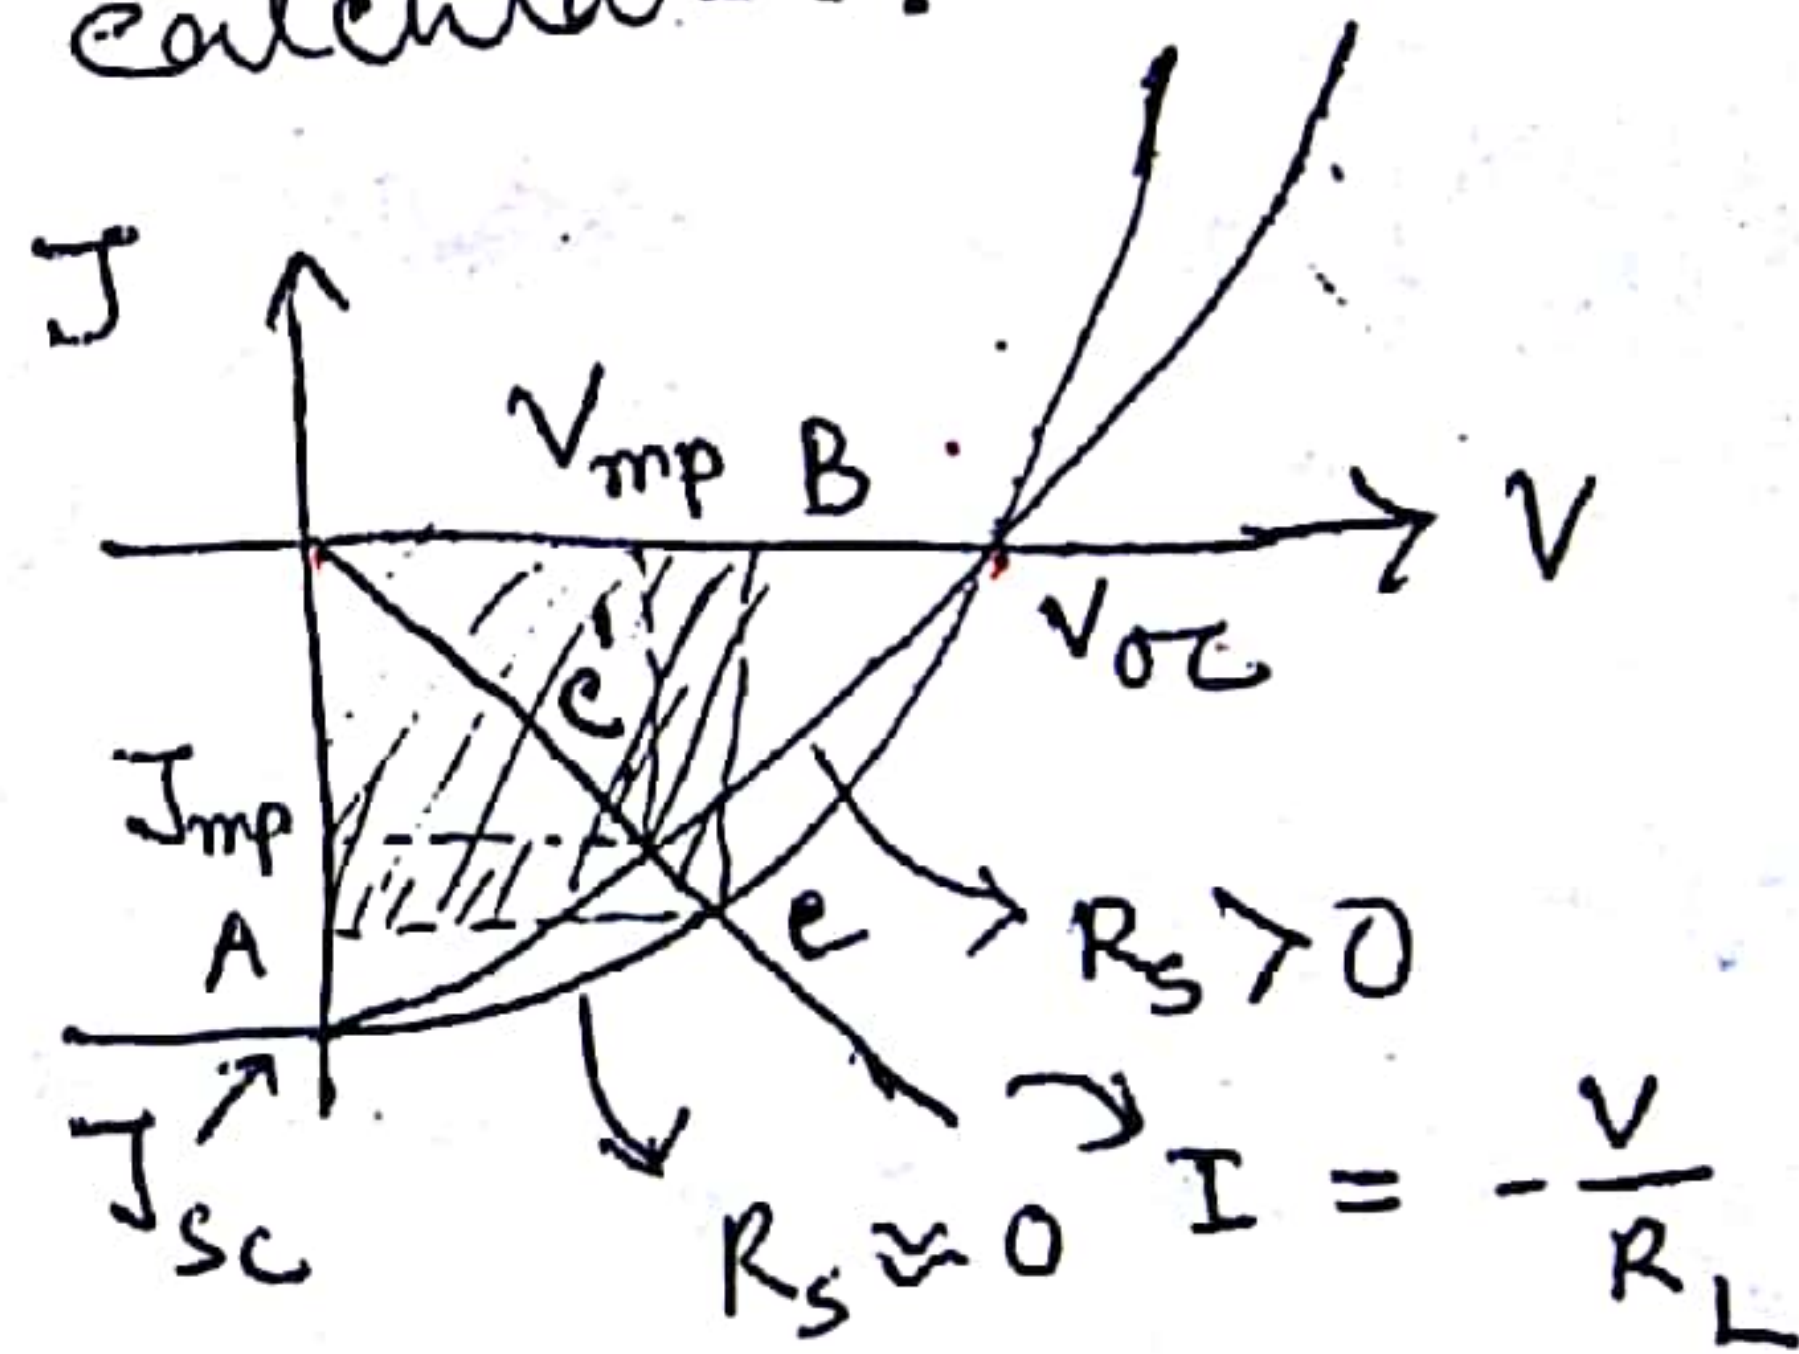 J
V_mp B
V
V_oc
c'
J_mp
A
e
R_s > 0
J_sc
R_s ≈ 0
I = -V/R_L